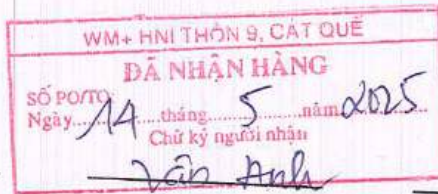 WM+ HNI THÔN 9, CÁT QUẾ
ĐÃ NHẬN HÀNG
SỐ PO/TO:
Ngày 14 tháng 5 năm 2025
Chữ ký người nhận
Vân Anh